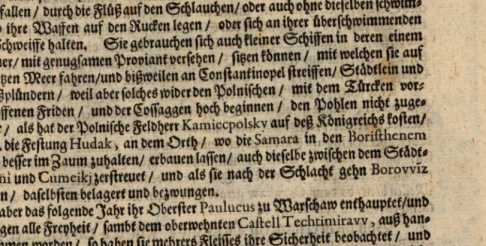 fallen / durch die Flüß auf den Schlauchen / oder auch ohne dieselben schwim-
ihre Waffen auf den Rucken legen / oder sich an ihrer überschwimmenden
Schweiffe halten. Sie gebrauchen sich auch kleiner Schiffen in deren einem
/ mit genugsamen Proviant versehen / sitzen können / mit welchen sie auf
Meer fahren / und bißweilen an Constantinopel streiffen / Städtlein und
plündern / weil aber solches wider den Polnischen / mit dem Türcken vor-
Friden / und der Cossaggen hoch beginnen / den Pohlen nicht zuge-
/ als hat der Polnische Feldherr Kamiecpolsky auf deß Königreichs kosten /
die Festung Hudak, an dem Orth / wo die Samara in den Boristhenem
besser im Zaum zuhalten / erbauen lassen / auch dieselbe zwischen dem Städt-
und Cumeikj zerstreuet / und als sie nach der Schlacht gehn Borovviz
/ daselbsten belagert und bezwungen.
aber das folgende Jahr ihr Oberster Paulucus zu Warschaw enthauptet / und
gen alle Freyheit / sambt dem oberwehnten Castell Techtimiravv, auß han-
worden / so haben sie mehrers Fleisses ihre Sicherheit beobachtet / und